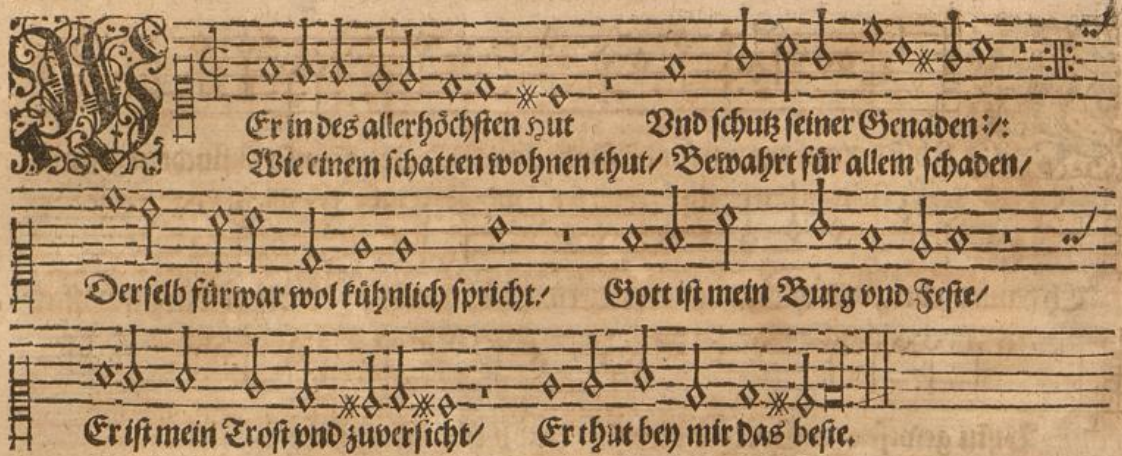 WEr in des allerhöchsten Hut Vnd schutz seiner Genaden :/:
Wie einem schatten wohnen thut/ Bewahrt für allem schaden/
Derselb fürwar wol kühnlich spricht/ Gott ist mein Burg vnd Feste/
Er ist mein Trost vnd zuversicht/ Er thut bey mir das beste.